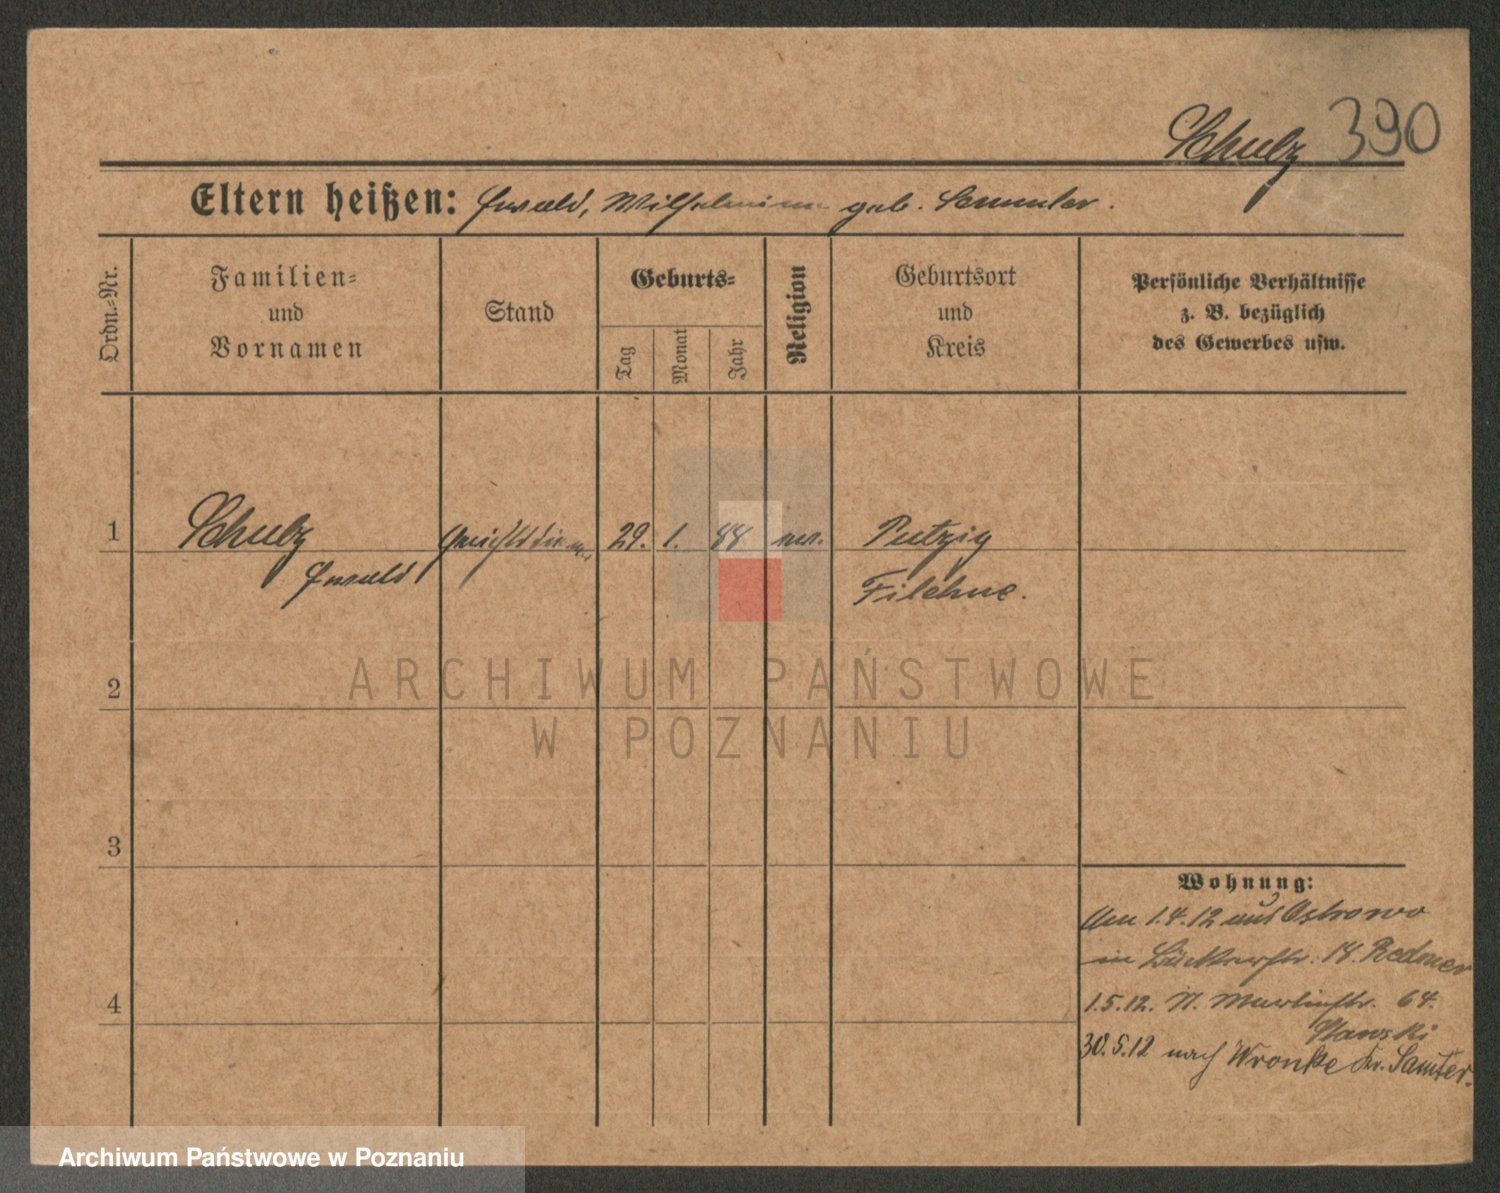 Schulz 390
Eltern heißen: Ewald, Wilhelmine geb. Semmler.
Ordn.-Nr.
Familien-
und
Vornamen
Stand
Geburts-
Tag
Monat
Jahr
Religion
Geburtsort
und
Kreis
Persönliche Verhältnisse
z. B. bezüglich
des Gewerbes usw.
1
Schulz
Ewald
Gerichtsdiener
29. 1. 88
ev.
Putzig
Filehne.
2
ARCHIWUM PAŃSTWOWE
W POZNANIU
3
4
Wohnung:
Am 1.4.12 aus Ostrowo
in 18. Redmer
1.5.12. N. Martinstr. 64.
30.5.12 nach Wronke Kr. Samter.
Archiwum Państwowe w Poznaniu